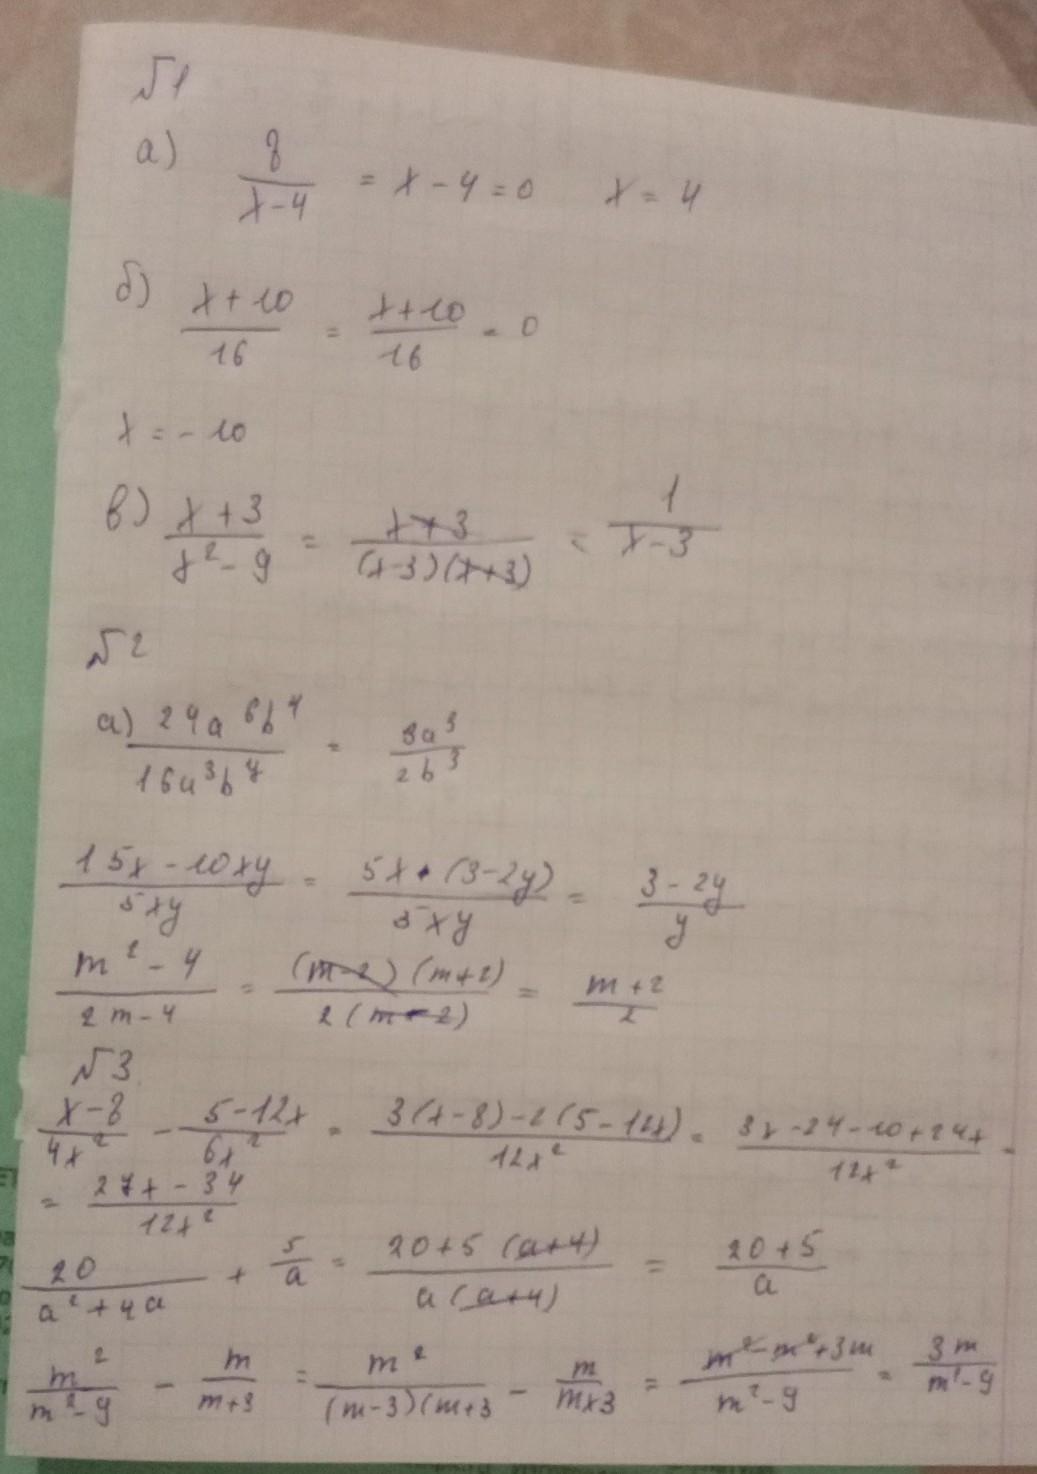 №1
а) 8/(x-4) = x-4=0 x=4
б) (x+10)/16 = (x+10)/16 = 0
x = -10
в) (x+3)/(x²-9) = (x+3)/((x-3)(x+3)) = 1/(x-3)
№2
а) 24a⁶b⁴/16a³b⁷ = 3a³/2b³
(15x-10xy)/5xy = 5x·(3-2y)/5xy = (3-2y)/y
(m²-4)/(2m-4) = (m-2)(m+2)/2(m-2) = (m+2)/2
№3
(x-8)/4x² - (5-12x)/6x² = (3(x-8)-2(5-12x))/12x² = (3x-24-10+24x)/12x² =
= (27x-34)/12x²
20/(a²+4a) + 5/a = (20+5(a+4))/a(a+4) = (20+5)/a
m²/(m²-9) - m/(m+3) = m²/(m-3)(m+3 - m/(m+3) = (m²-m²+3m)/(m²-9) = 3m/(m²-9)